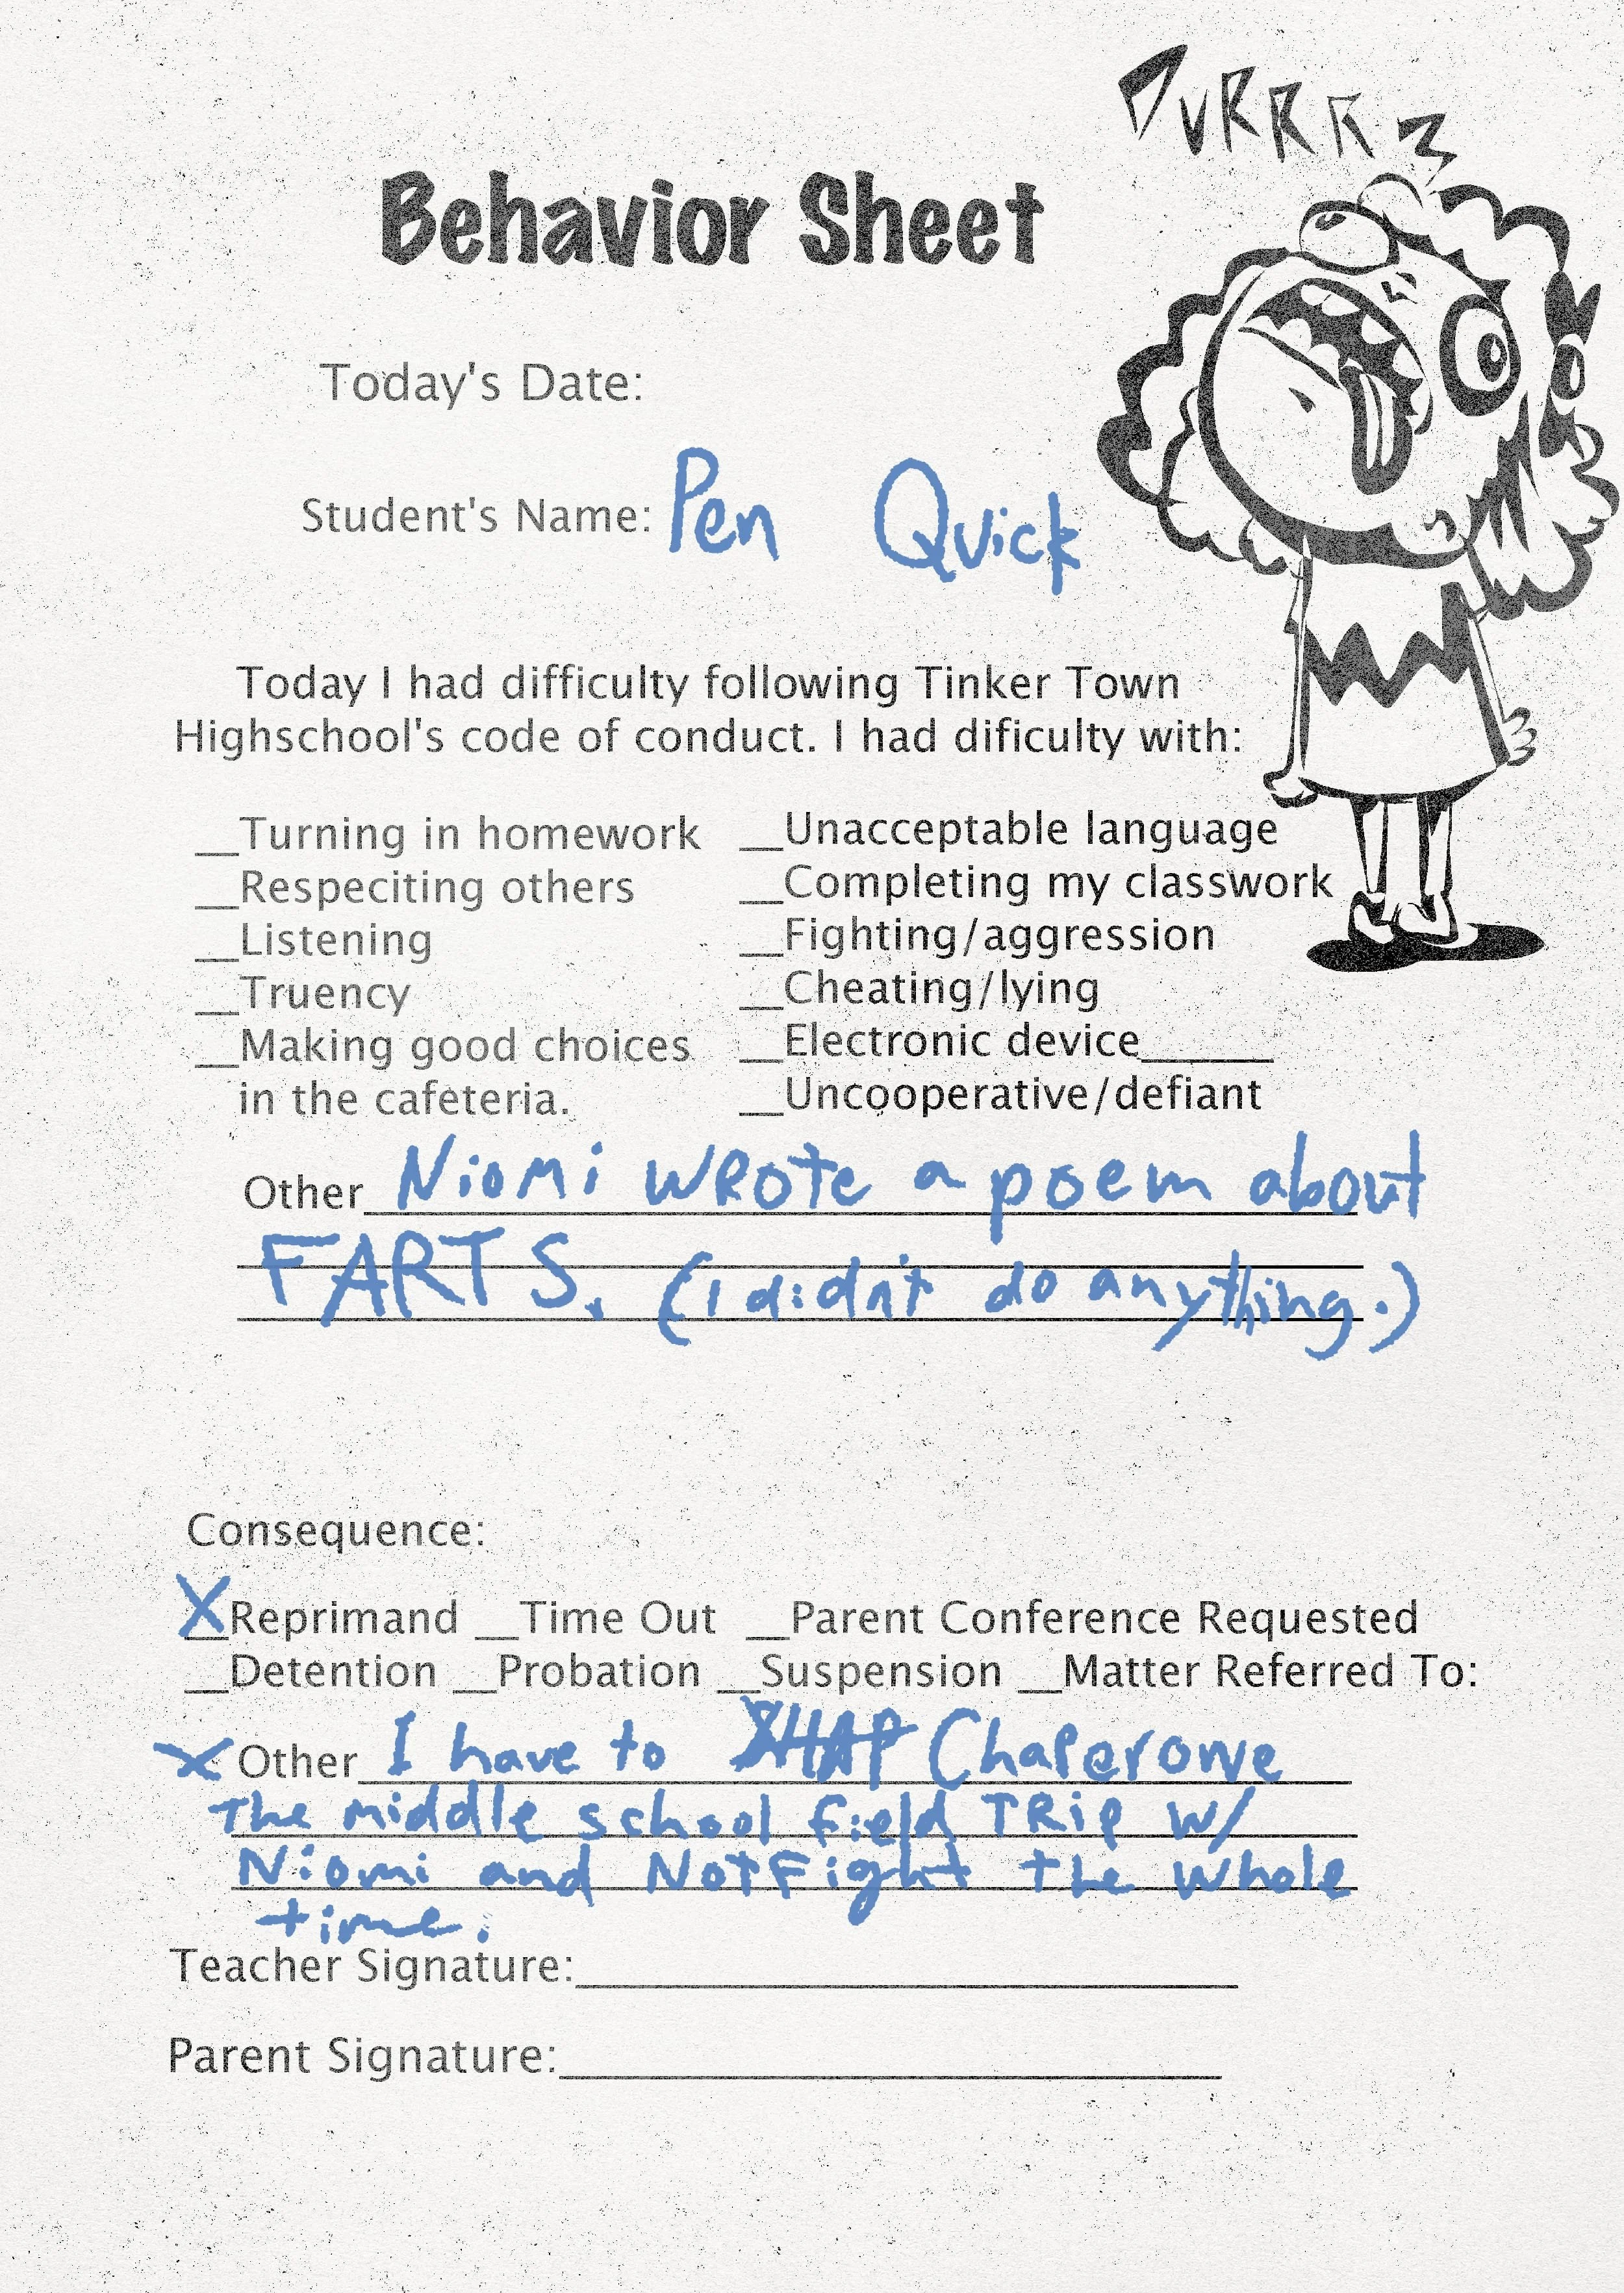 PURRR
Behavior Sheet
Today's Date:
Student's Name: Pen Quick
Today I had difficulty following Tinker Town
Highschool's code of conduct. I had dificulty with:
__Turning in homework __Unacceptable language
__Respeciting others __Completing my classwork
__Listening __Fighting/aggression
__Truency __Cheating/lying
__Making good choices __Electronic device______
in the cafeteria. __Uncooperative/defiant
Other Niomi wrote a poem about
FARTS. (I didn't do anything.)
Consequence:
X Reprimand __Time Out __Parent Conference Requested
__Detention __Probation __Suspension __Matter Referred To:
X Other I have to Chaperowe
The middle school field TRip w/
Niomi and Not Fight the whole
time.
Teacher Signature:
Parent Signature: